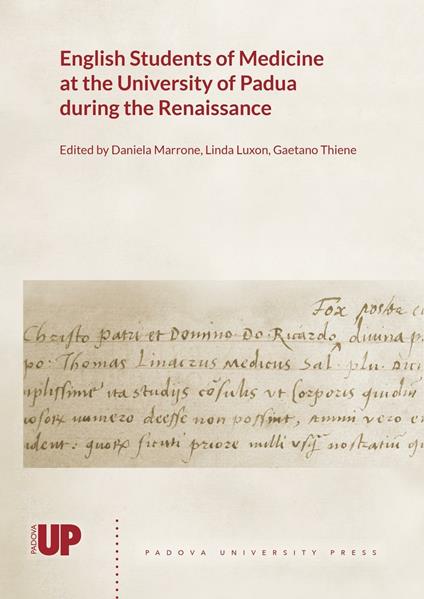 English Students of Medicine
at the University of Padua
during the Renaissance
Edited by Daniela Marrone, Linda Luxon, Gaetano Thiene
Fox postea
Christo patri et Domino Do. Ricardo divina p
po. Thomas Linacrus Medicus Sal. plu. Dici
mplissime ita studijs cōsulis ut Corporis
numero deesse non possint, animi vero
priore nulli nostratiū
PADOVA
UP
PADOVA UNIVERSITY PRESS